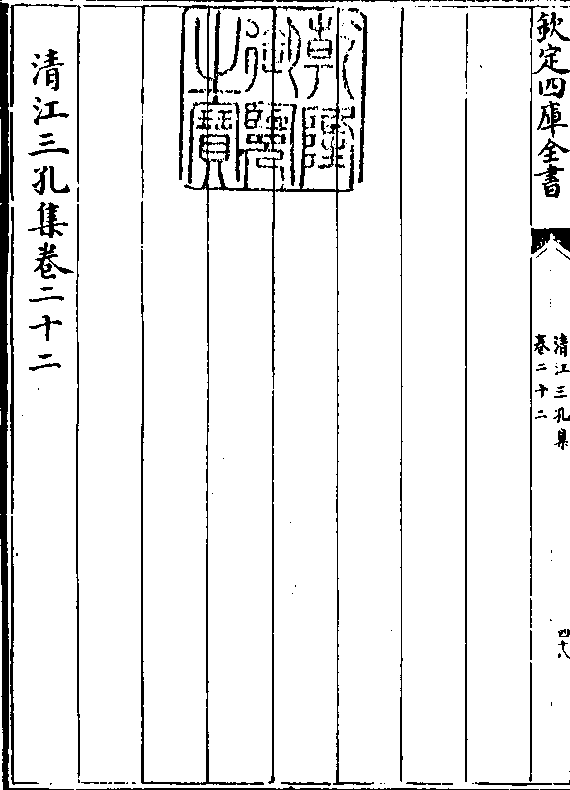 欽定四庫全書
清江三孔集
卷二十二
四十八
乾隆御覽之寶
清江三孔集卷二十二